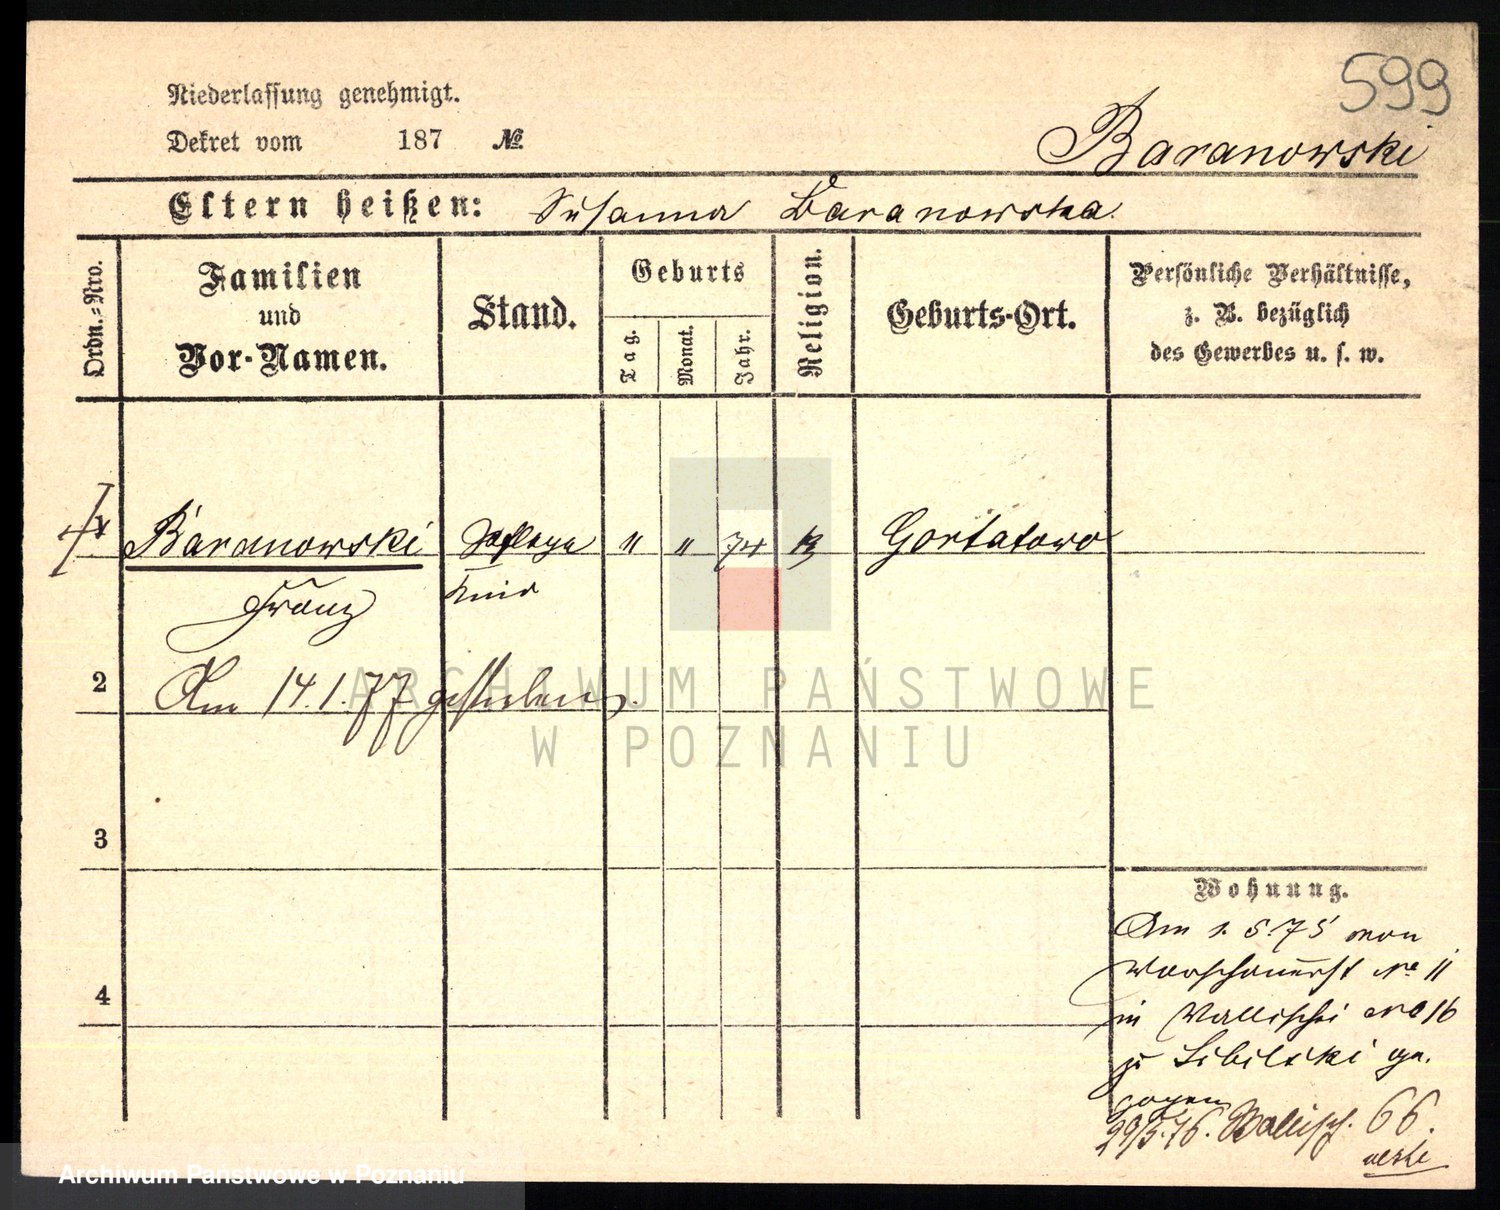 599
Niederlassung genehmigt.
Dekret vom 187 №
Baranowski
Eltern heißen: Susanna Baranowska.
Ordn.-Nro.
Familien
und
Vor-Namen.
Stand.
Geburts
Tag.
Monat.
Jahr.
Religion.
Geburts-Ort.
Persönliche Verhältnisse,
z. B. bezüglich
des Gewerbes u. s. w.
Baranowski Pflege " " 74 K Gortatowo
Franz kind
2 Am 14.1.77 gestorben.
3
Wohnung.
Am 1. 5. 75 von
Warschauerst No 11
4
in Wallischei No 16
zu ge.
zogen
29/5.76. Wallisch. 66.
ARCHIWUM PAŃSTWOWE
W POZNANIU
Archiwum Państwowe w Poznaniu